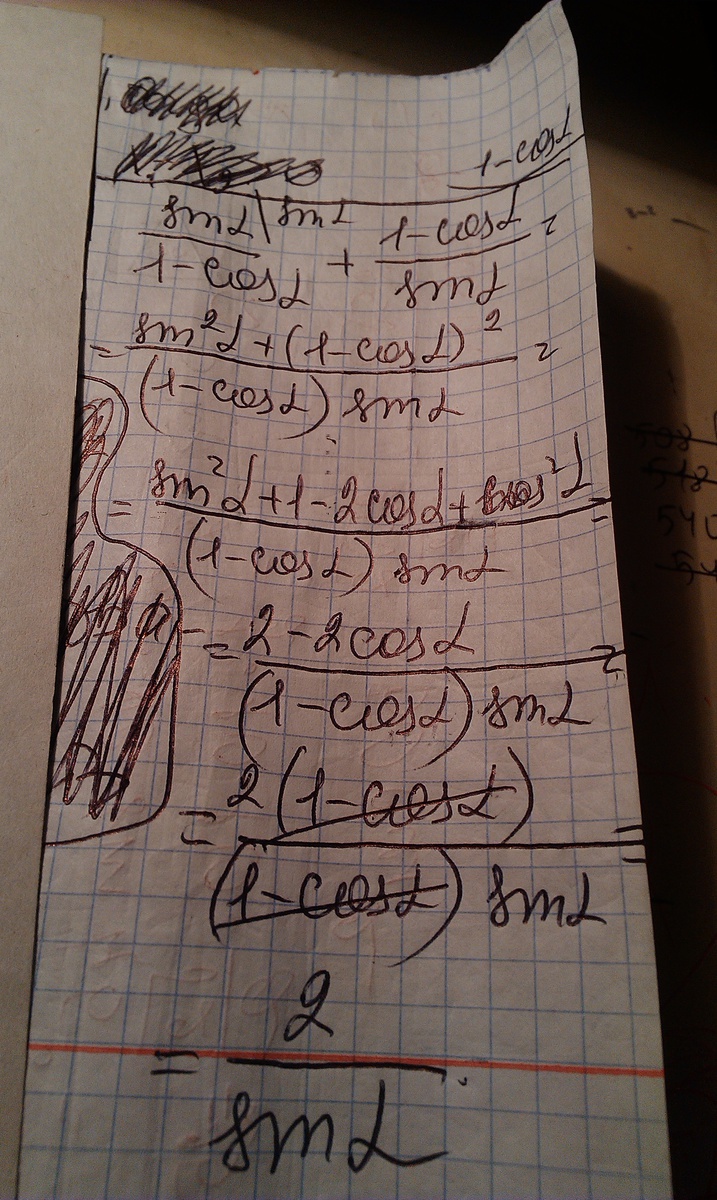 1-cosα
sinα\sinα/(1-cosα) + (1-cosα)/sinα =
= (sin²α+(1-cosα)²)/((1-cosα) sinα) =
= (sin²α+1-2cosα+cos²α)/((1-cosα) sinα) =
= (2-2cosα)/((1-cosα) sinα) =
= 2(1-cosα)/((1-cosα) sinα) =
= 2/sinα.